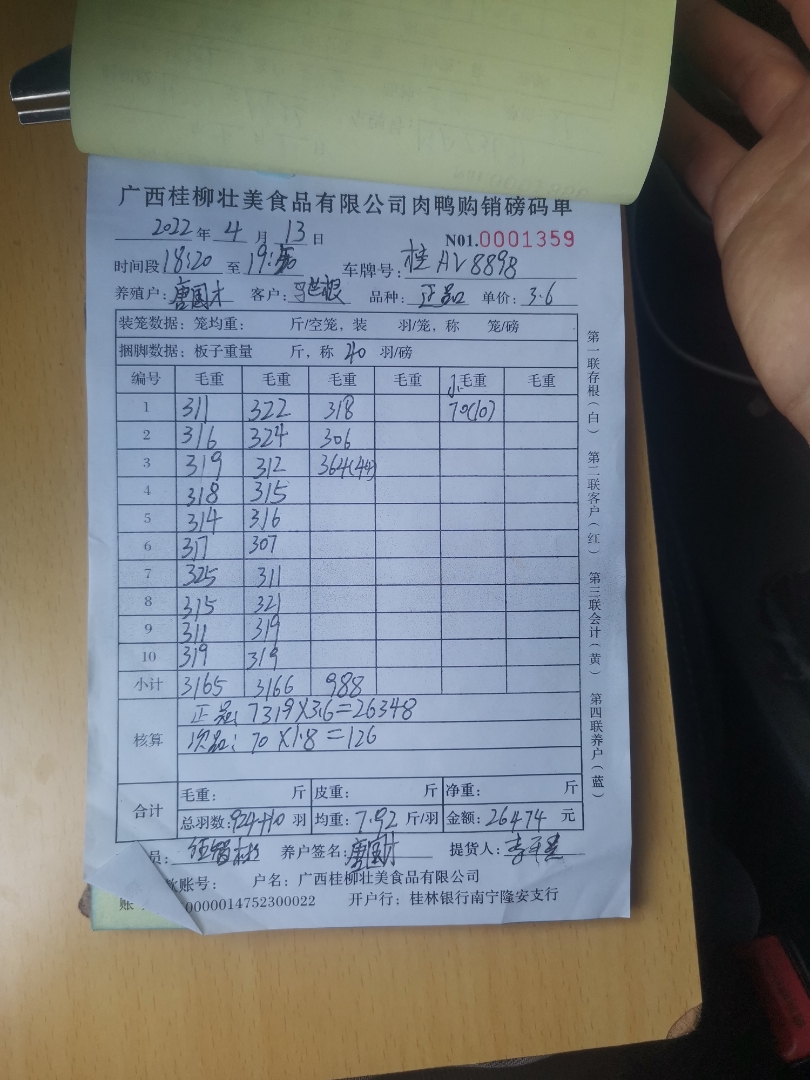 广西桂柳壮美食品有限公司肉鸭购销磅码单
2022年 4 月 13 日 N01.0001359
时间段 18:20 至 19: 车牌号: 桂AV8898
养殖户: 唐国才 客户: 根 品种: 正品 单价: 3.6
装笼数据: 笼均重: 斤/空笼, 装 羽/笼, 称 笼/磅
捆脚数据: 板子重量 斤, 称 40 羽/磅
编号 毛重 毛重 毛重 毛重 小毛重 毛重
1 311 322 318 70(10)
2 316 324 306
3 319 312 364(44)
4 318 315
5 314 316
6 317 307
7 325 311
8 315 321
9 311 319
10 319 319
小计 3165 3166 988
核算 正品: 7319×3.6=26348
次品: 70×1.8=126
合计 毛重: 斤 皮重: 斤 净重: 斤
总羽数: 924+10 羽 均重: 7.92 斤/羽 金额: 26474 元
员: 养户签名: 唐国才 提货人: 李
款账号: 户名: 广西桂柳壮美食品有限公司
账 0000014752300022 开户行: 桂林银行南宁隆安支行
第一联存根(白) 第二联客户(红) 第三联会计(黄) 第四联养户(蓝)